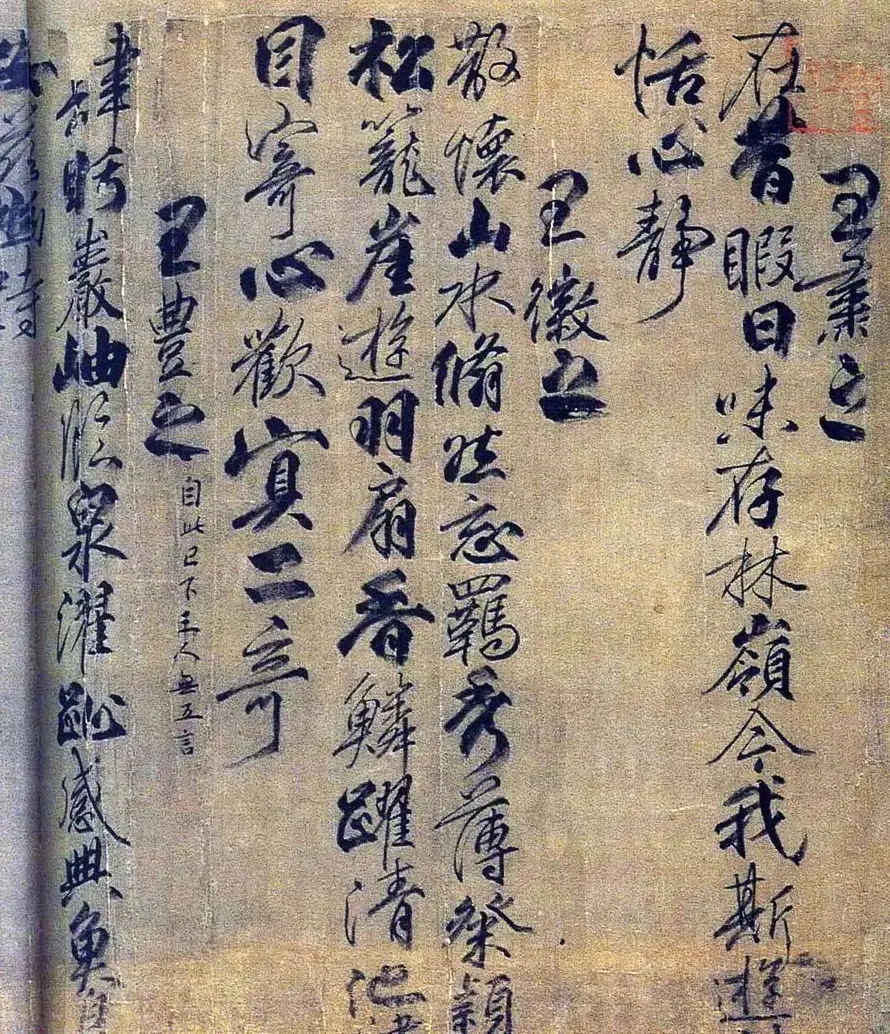 王肅之
在昔暇日味存林嶺今我斯遊
恬心靜
王徽之
散懷山水翛然忘羈秀薄粲穎
松籠崖遊羽扇香鱗躍清池
目寄心歡寘二奇
王豊之
自此已下王人無五言
肆眄巖岫臨泉濯趾感興魚